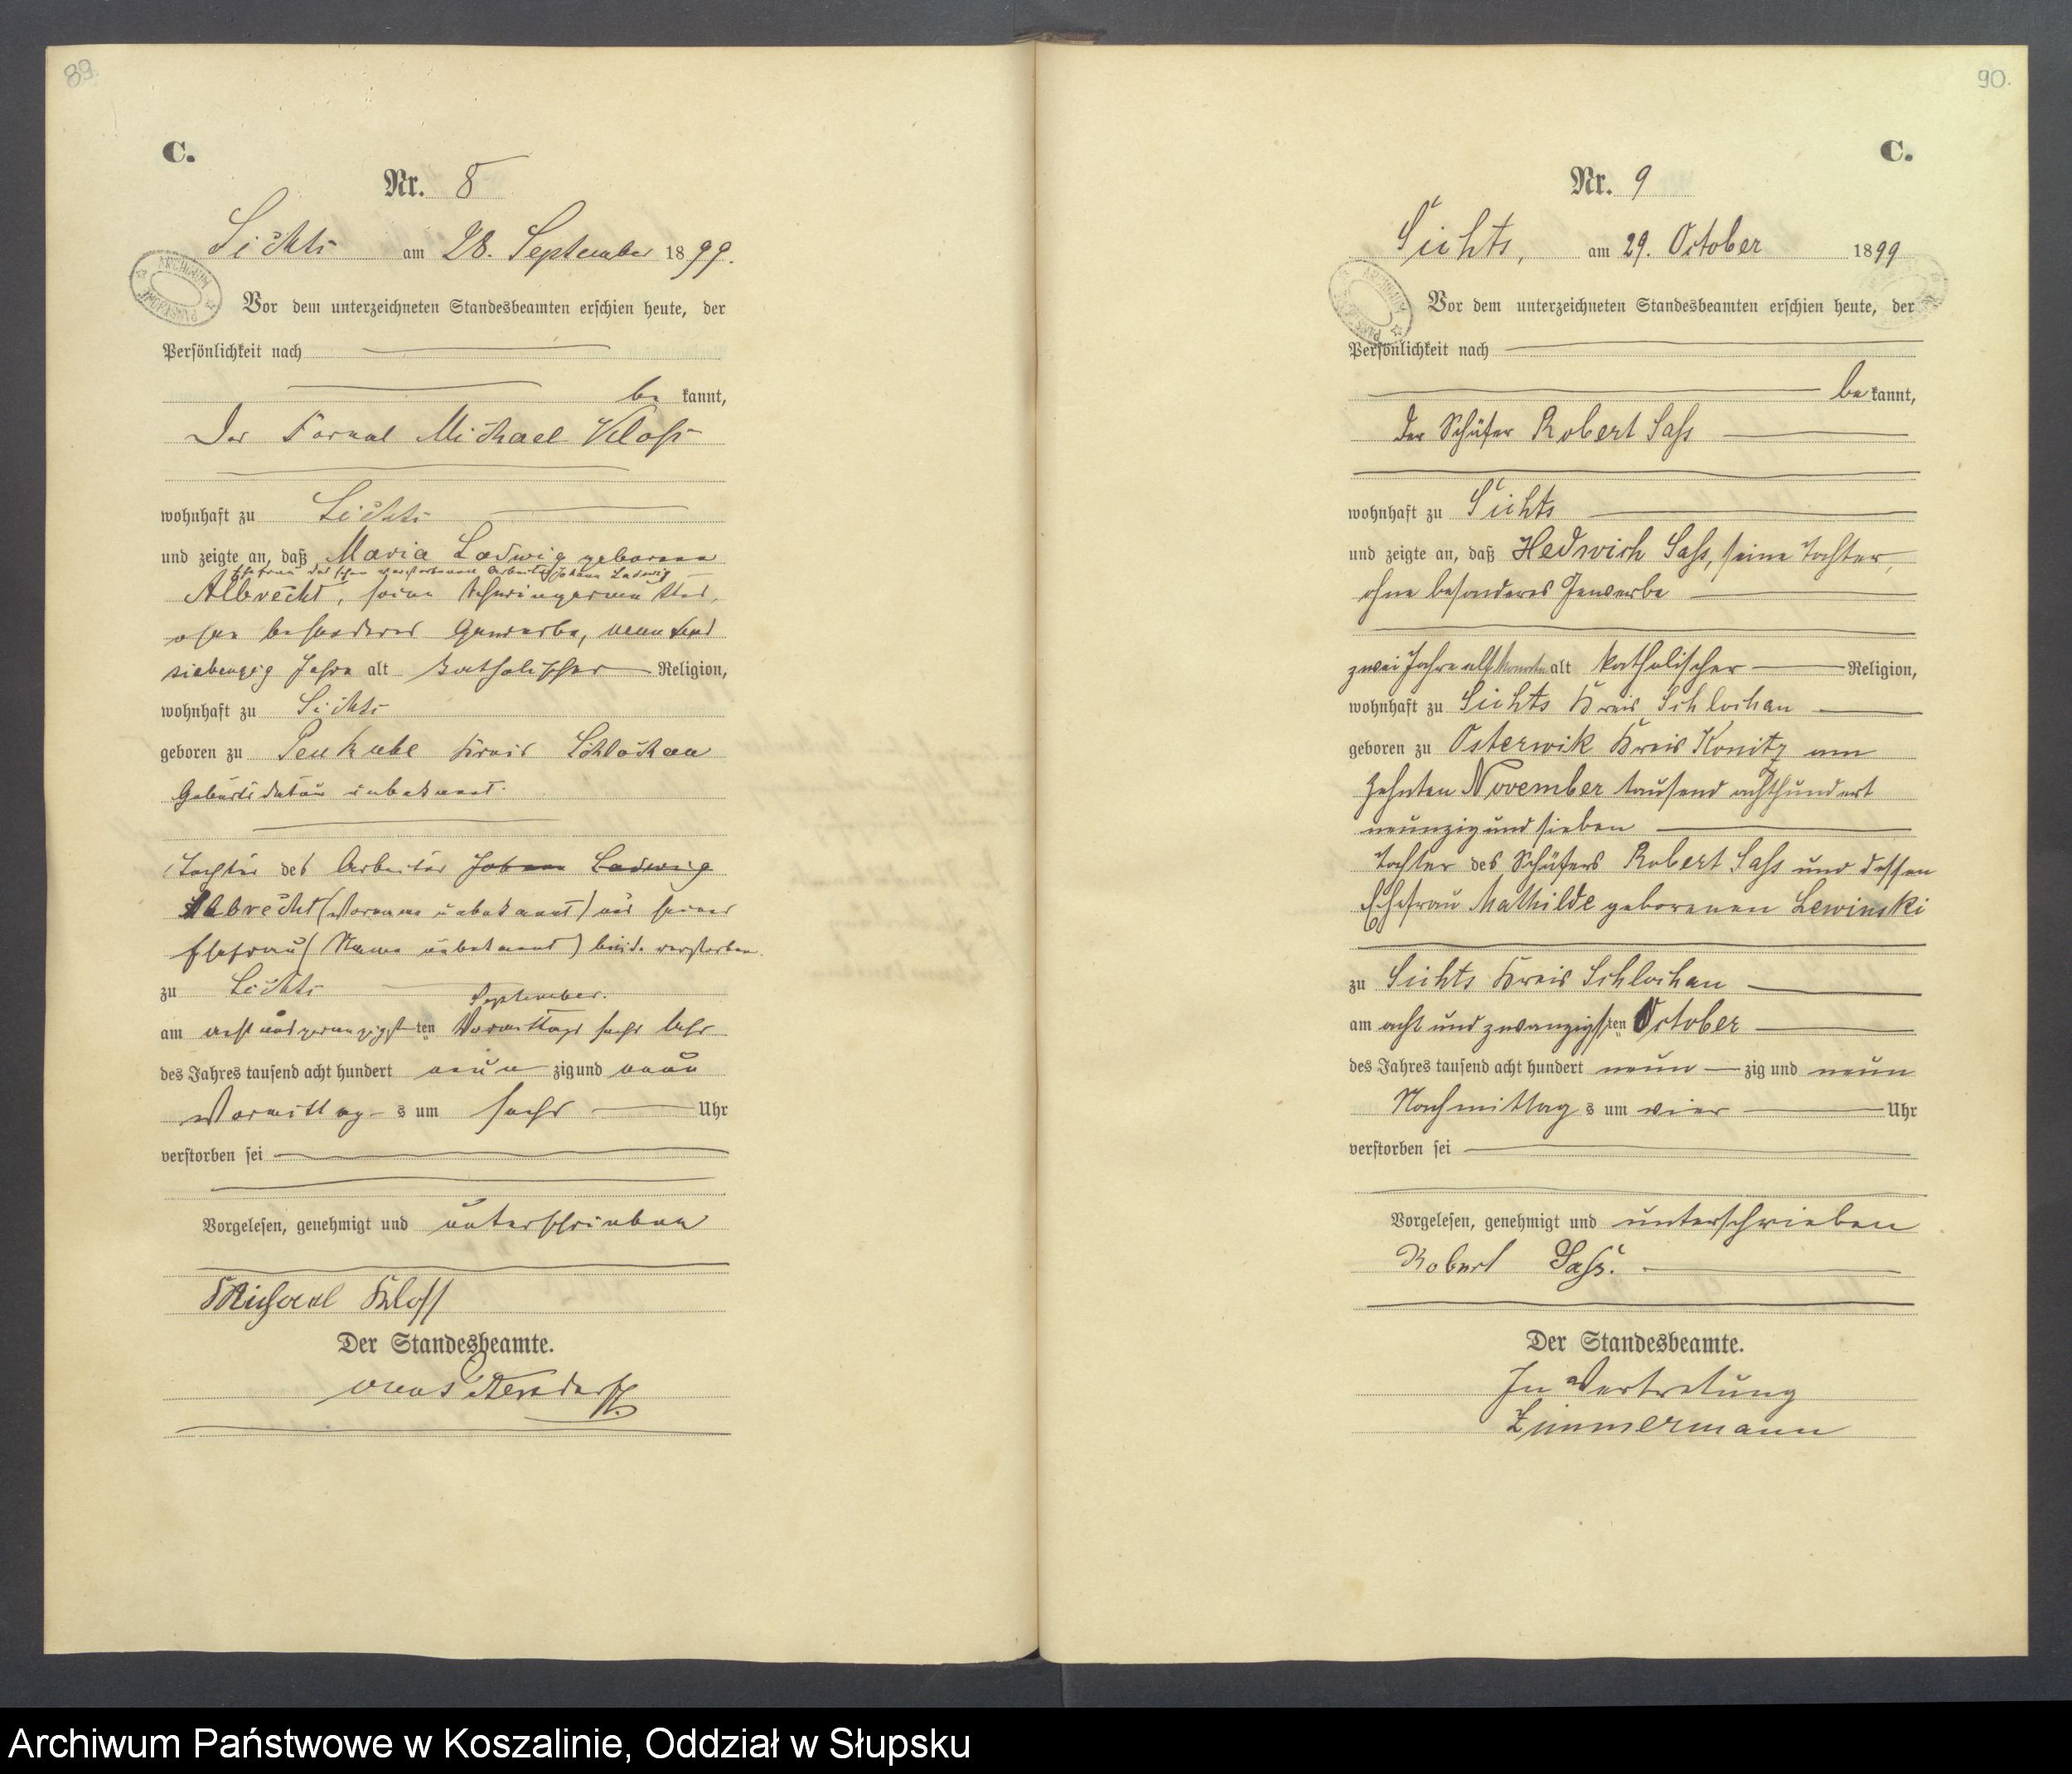 89.
C.
Nr. 8
Sichts am 28. September 1899.
ARCHIWUM PAŃSTWOWE
Vor dem unterzeichneten Standesbeamten erschien heute, der
Persönlichkeit nach
be kannt,
Der Fornal Michael Kloß
wohnhaft zu Sichts
und zeigte an, daß Maria Ladwig geborene
Ehefrau des schon verstorbenen Arbeiters Johann Ladwig
Albrecht, seine Schwiegermutter,
ohne besonderes Gewerbe, neun und
siebenzig Jahre alt katholischer Religion,
wohnhaft zu Sichts
geboren zu Penkuhl Kreis Schlochau
Geburtsdatum unbekannt.
Tochter des Arbeiter Johann Ladwig
Albrecht (Vorname unbekannt) und seiner
Ehefrau (Name unbekannt) beide verstorben.
zu Sichts
September.
am acht und zwanzigsten Vormittags sechs Uhr
des Jahres tausend acht hundert neun zig und neun
Vormittag s um sechs Uhr
verstorben sei
Vorgelesen, genehmigt und unterschrieben
Michael Kloß
Der Standesbeamte.
90.
C.
Nr. 9
Sichts, am 29. October 1899
ARCHIWUM
Vor dem unterzeichneten Standesbeamten erschien heute, der
Persönlichkeit nach
be kannt,
der Schäfer Robert Sass
wohnhaft zu Sichts
und zeigte an, daß Hedwich Sass, seine Tochter,
ohne besonderes Gewerbe
zwei Jahre alt katholischer Religion,
wohnhaft zu Sichts Kreis Schlochau
geboren zu Osterwik Kreis Konitz am
zehnten November tausend achthundert
neunzig und sieben
Tochter des Schäfers Robert Sass und dessen
Ehefrau Mathilde geborenen Lewinski
zu Sichts Kreis Schlochau
am acht und zwanzigsten October
des Jahres tausend acht hundert neun zig und neun
Nachmittag s um vier Uhr
verstorben sei
Vorgelesen, genehmigt und unterschrieben
Robert Sass.
Der Standesbeamte.
In Vertretung
Zimmermann
Archiwum Państwowe w Koszalinie, Oddział w Słupsku